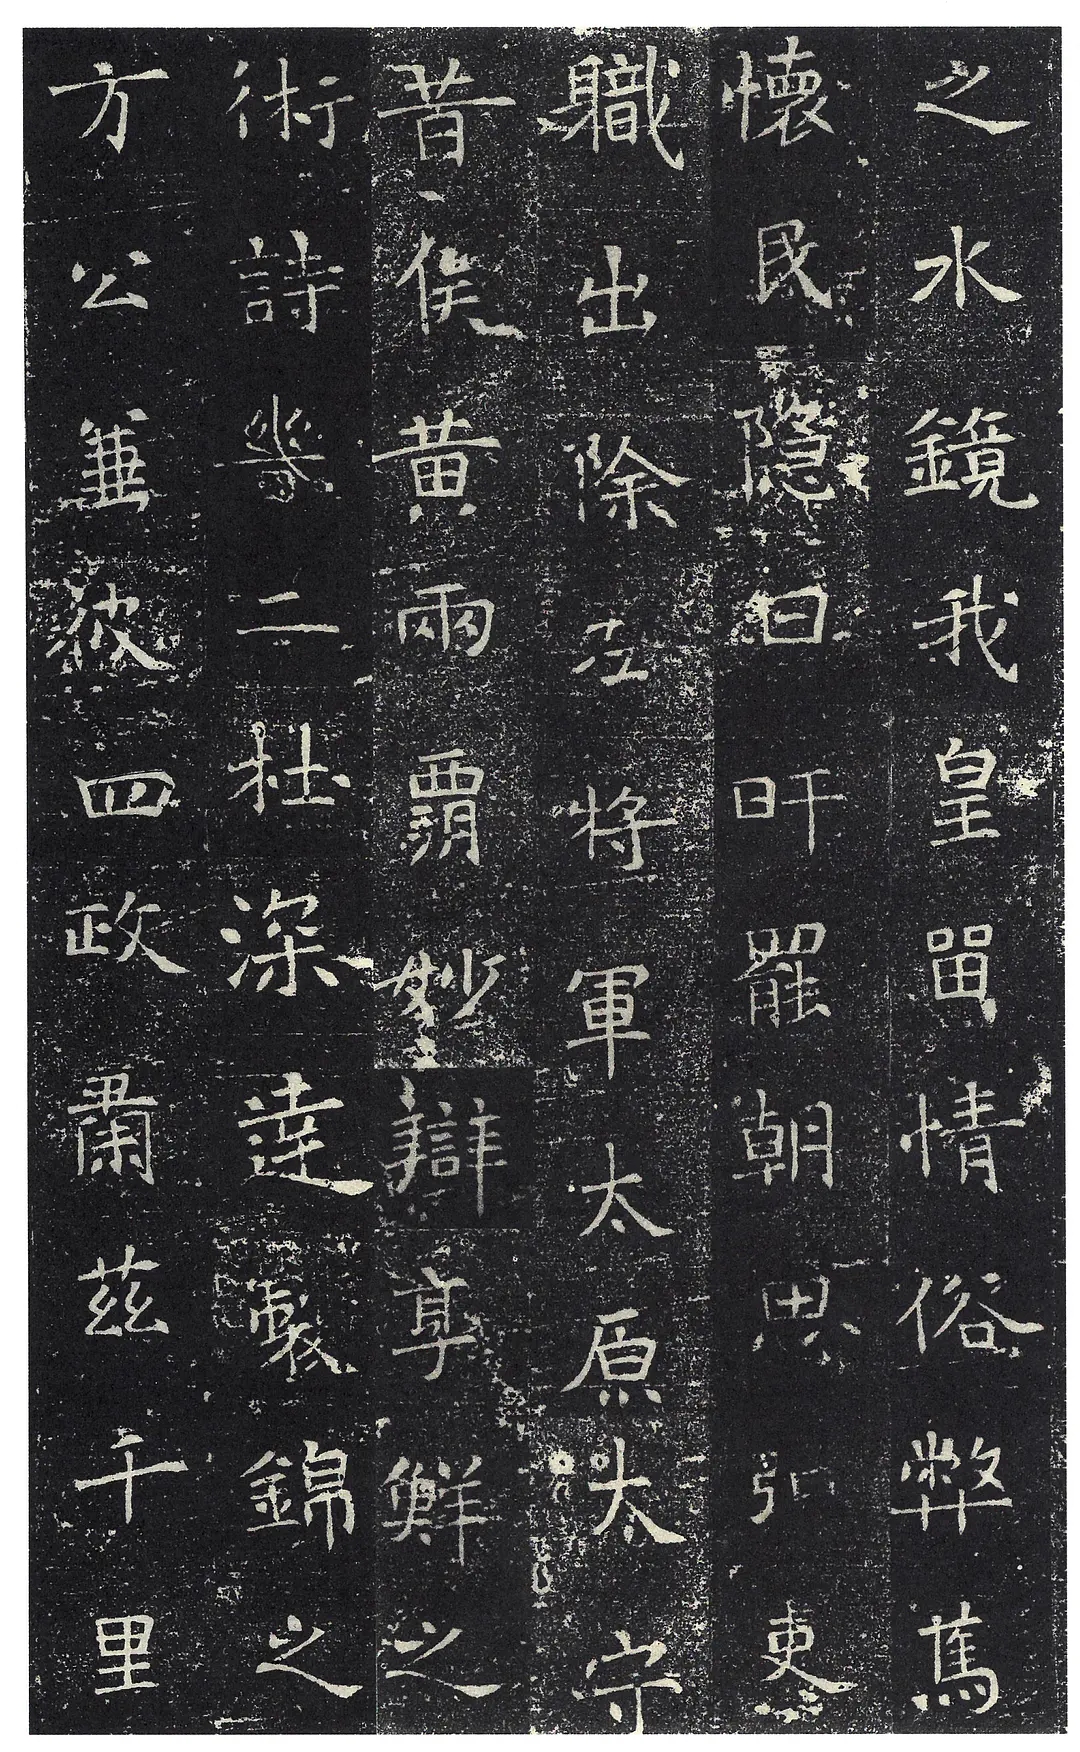 之水鏡我皇留情俗弊篤
懷民隱日旰罷朝思弘吏
職出除左將軍太原太守
昔侯黃兩霸妙辯享鮮之
術詩畿二杜深達製錦之
方公兼彼四政肅茲千里